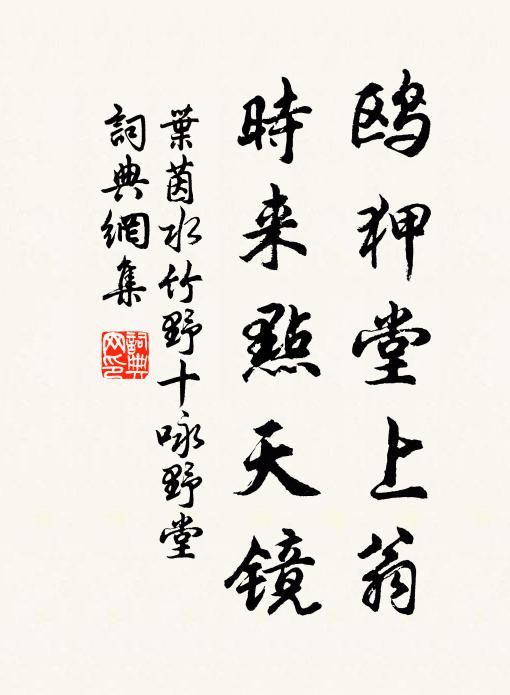 鸥狎堂上翁
時来點天镜
葉茵水竹野十咏野堂
詞典網集
詞典
网印